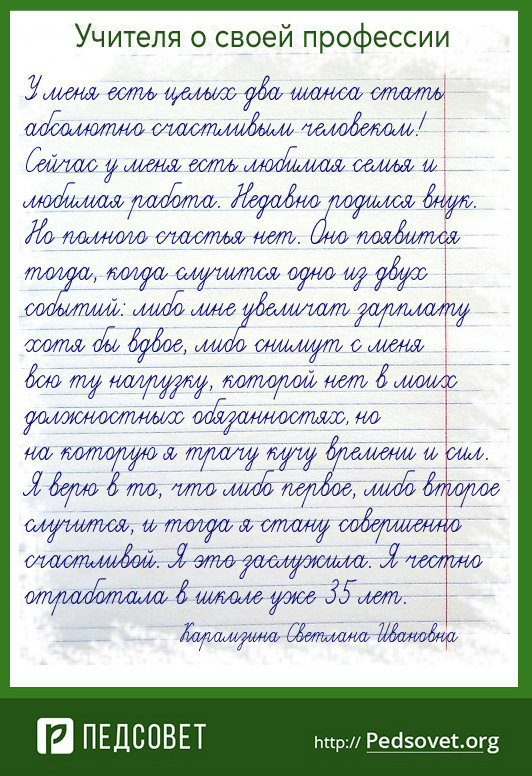 Учителя о своей профессии
У меня есть целых два шанса стать
абсолютно счастливым человеком!
Сейчас у меня есть любимая семья и
любимая работа. Недавно родился внук.
Но полного счастья нет. Оно появится
тогда, когда случится одно из двух
событий: либо мне увеличат зарплату
хотя бы вдвое, либо снимут с меня
всю ту нагрузку, которой нет в моих
должностных обязанностях, но
на которую я трачу кучу времени и сил.
Я верю в то, что либо первое, либо второе
случится, и тогда я стану совершенно
счастливой. Я это заслужила. Я честно
отработала в школе уже 35 лет.
Карамзина Светлана Ивановна
ПЕДСОВЕТ
http:// Pedsovet.org